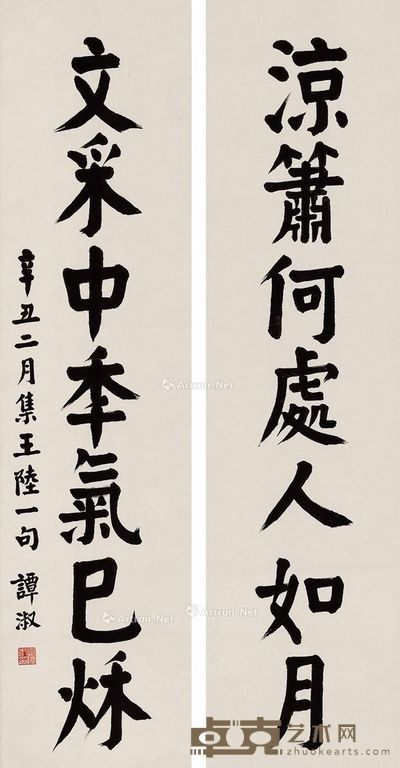 涼簫何處人如月
文采中秊氣已秌
辛丑二月集王陸一句 譚淑
Artron.Net
Artron.Net
Artron.Net
卓克艺术网
zhuokearts.com